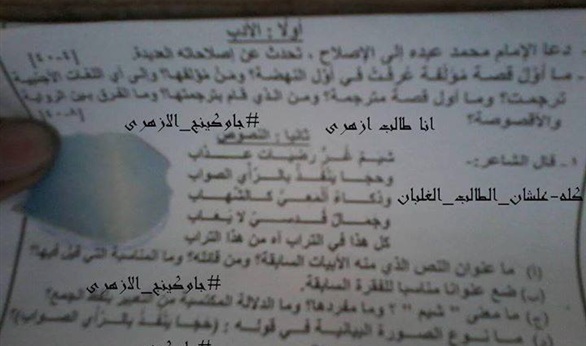 أولًا : الأدب
دعا الإمام محمد عبده إلى الإصلاح ، تحدث عن إصلاحاته العديدة.
ما أول قصة مؤلفة عرفت في أول النهضة؟ ومن مؤلفها؟ وإلى أي اللغات الأجنبية
ترجمت؟ وما أول قصة مترجمة؟ ومن الذي قام بترجمتها؟ وما الفرق بين الرواية
والأقصوصة؟
#جاوكينج_الازهرى
انا طالب ازهرى
ثانيا : النصوص
١ - قال الشاعر :-
شيم غر رضيات عذاب
وحجا ينفذ بالرأي الصواب
وذكاء ألمعي كالشهاب
كله-علشان_الطالب_الغلبان
وجمال قدسي لا يعاب
كل هذا في التراب آه من هذا التراب
(أ) ما عنوان النص الذي منه الأبيات السابقة؟ ومن قائله؟ وما المناسبة التي قيل فيها؟
(ب) ضع عنوانا مناسبا للفقرة السابقة.
#جاوكينج_الازهرى
(ج) ما معنى " شيم " ؟ وما مفردها؟ وما الدلالة
ما نوع الصورة البيانية في قوله : (حجا ينفذ بالرأي الصواب)؟